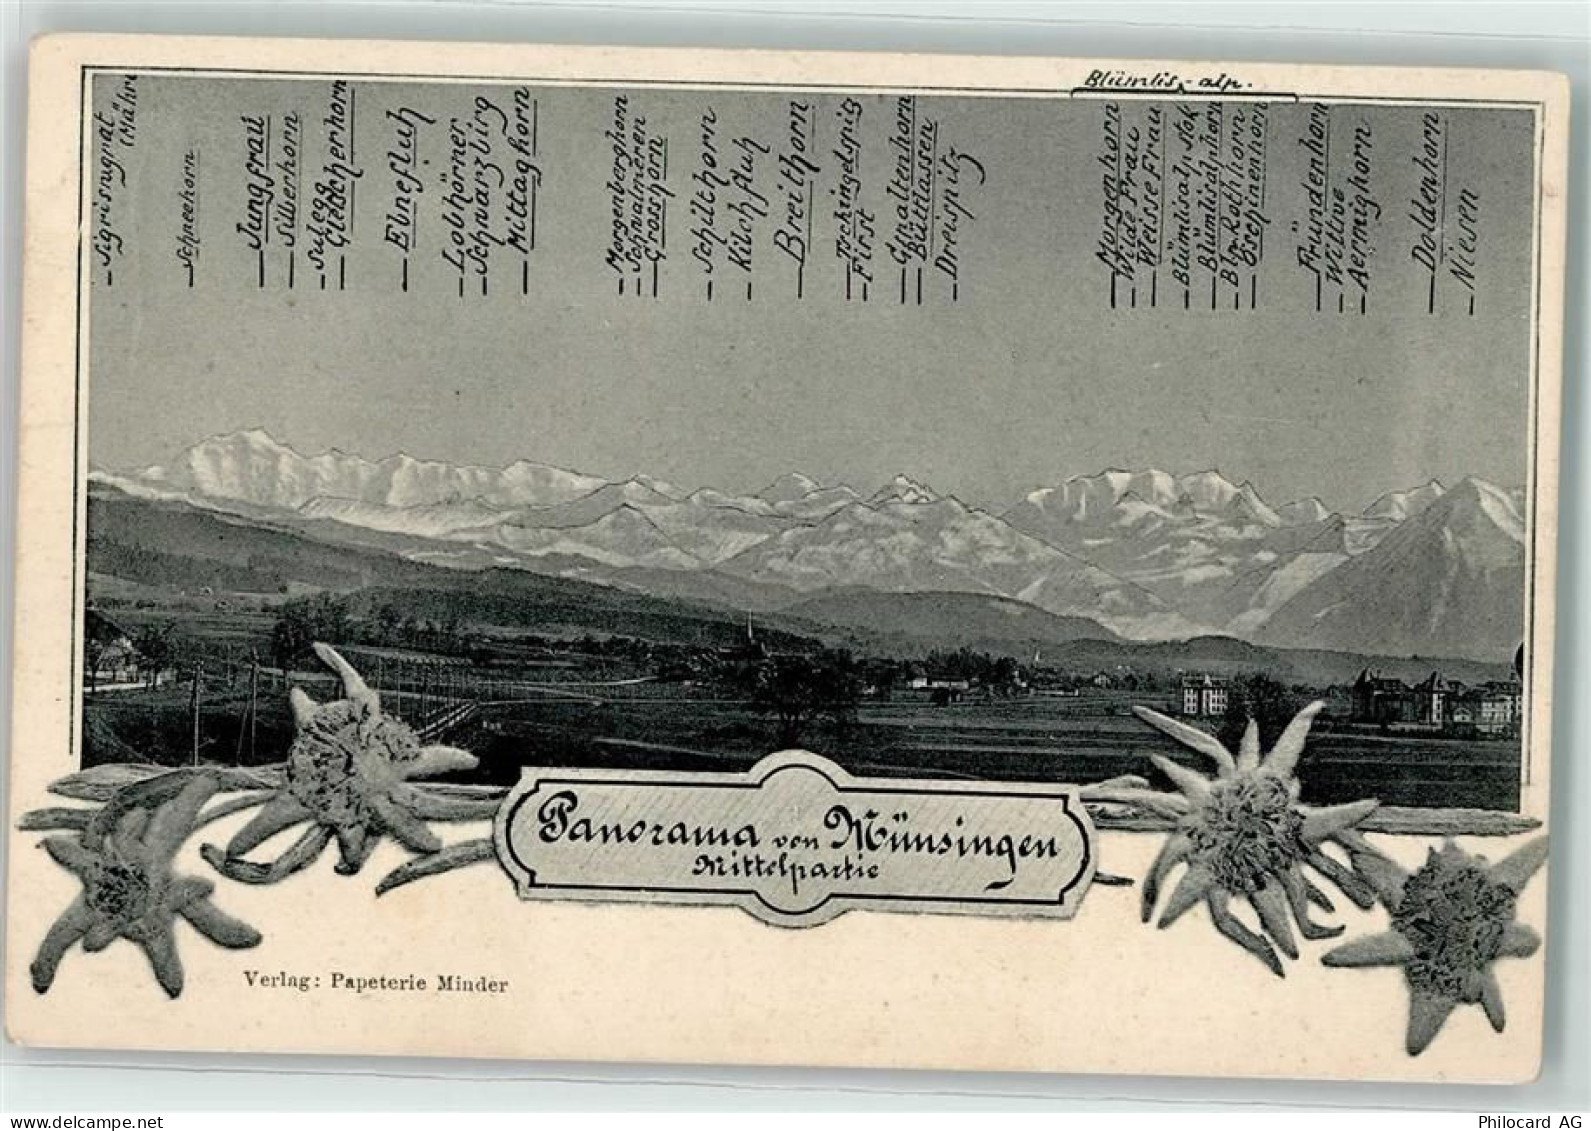 Blümlis-alp.
Sigrisrugrat
(Mähre
Schneehorn
Jungfrau
Silberhorn
Suleg
Gletscherhorn
Ebnefluh
Lobhörner
Schwarzbirg
Mittaghorn
Morgenberghorn
Schwalmeren
Grosshorn
Schilthorn
Kilchfluh
Breithorn
Tschingelspitz
First
Gspaltenhorn
Büttlassen
Dreispitz
Morgenhorn
Wilde Frau
Weisse Frau
Blümlisalpstok
Blümlisalphorn
Rothhorn
Öschinenhorn
Fründenhorn
Wittwe
Aermighorn
Doldenhorn
Niesen
Panorama von Münsingen
Mittelpartie
Verlag: Papeterie Minder
delcampe.net
Philocard AG